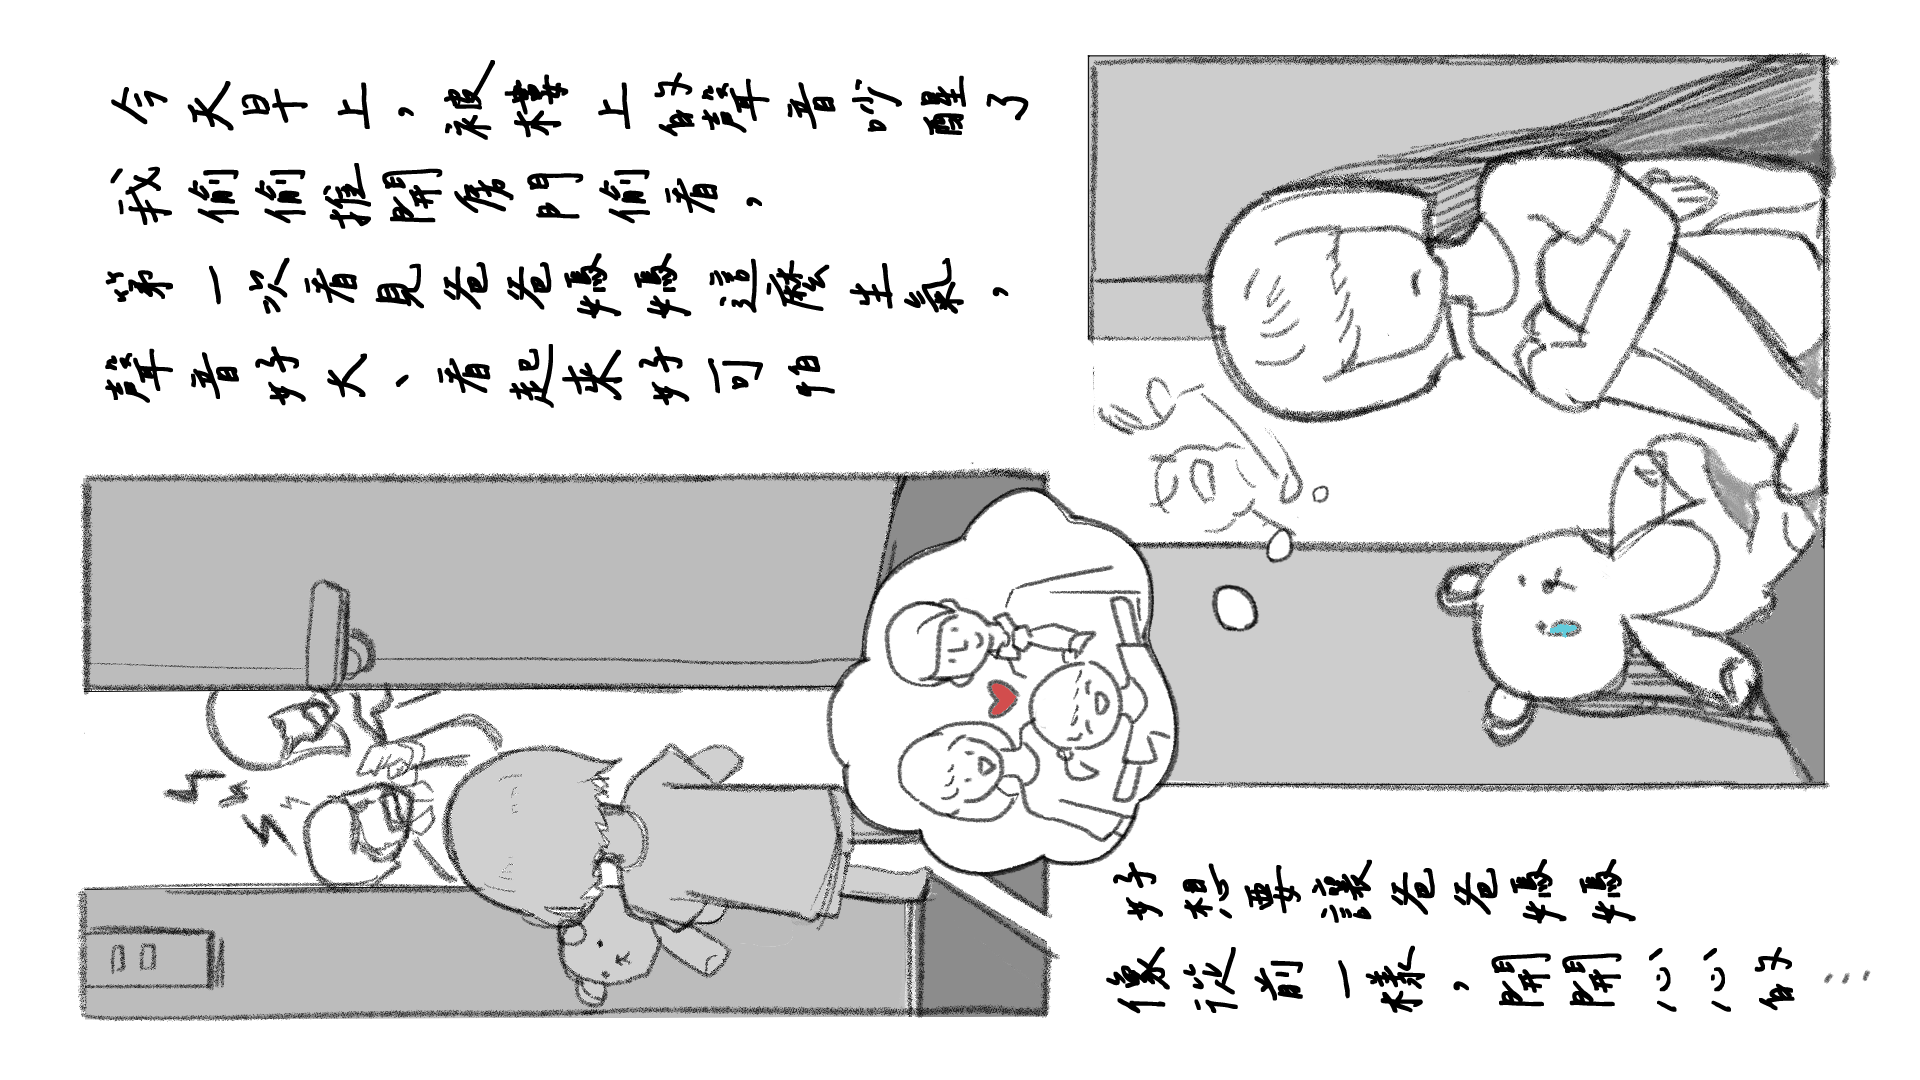 今天早上，被樓上的聲音吵醒了
我偷偷推開房門偷看，
第一次看見爸爸媽媽這麼生氣，
聲音好大、看起來好可怕
好想要讓爸爸媽媽
像從前一樣，開開心心的...